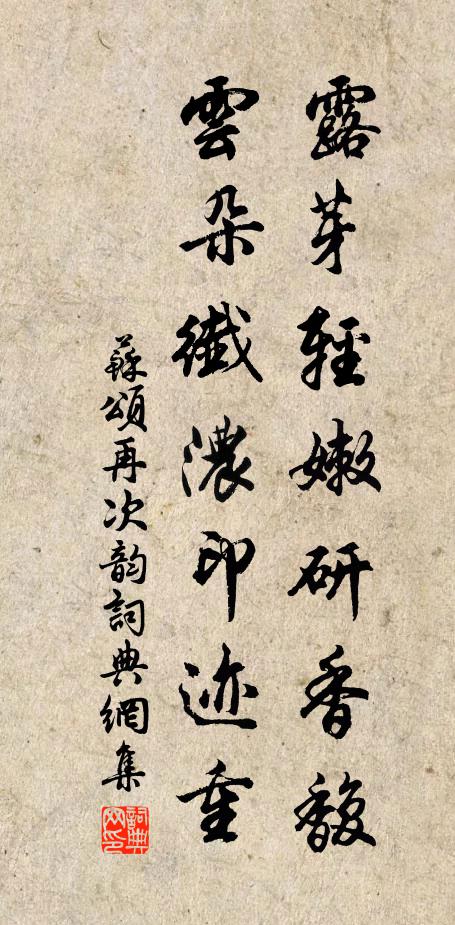 露芽輕嫩研香馥
雲朵纖濃印迹重
蘇頌再次韵詞典網集
詞典網印